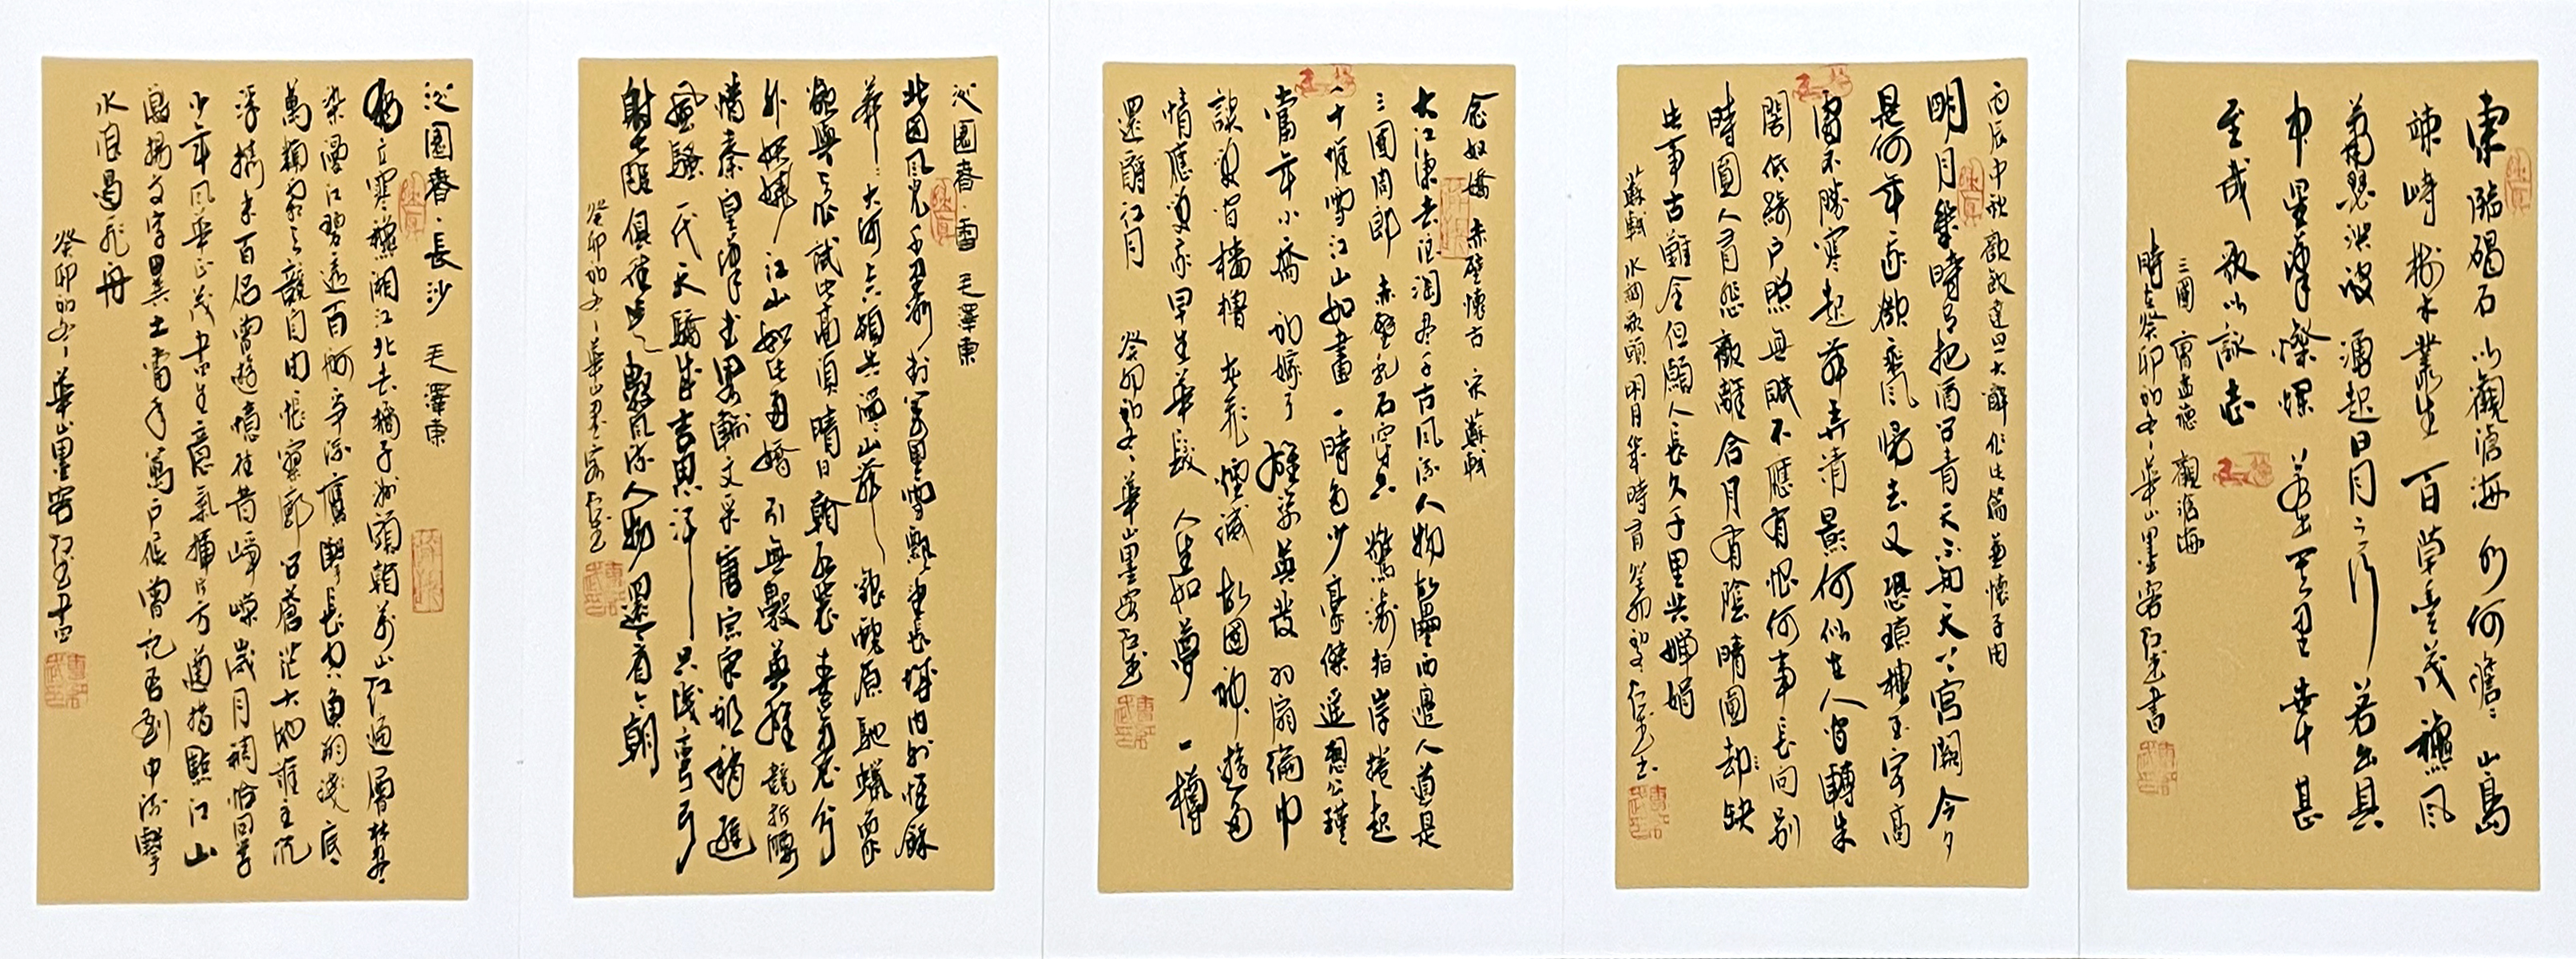 東臨碣石以觀滄海水何澹澹山島
竦峙樹木叢生百草豐茂穐風
蕭瑟洪波湧起日月之行若出其
中星漢燦爛若出其里幸甚
至哉歌以詠志
三國 曹孟德 觀滄海
時在癸卯初冬華山墨客紅武書
丙辰中秋歡飲達旦大醉作此篇兼懷子由
明月幾時有把酒問青天不知天上宮闕今夕
是何年我欲乘風歸去又恐瓊樓玉宇高
處不勝寒起舞弄清影何似在人間轉朱
閣低綺戶照無眠不應有恨何事長向別
時圓人有悲歡離合月有陰晴圓缺
此事古難全但願人長久千里共嬋娟
蘇軾水調歌頭明月幾時有癸卯初冬紅武書
念奴嬌 赤壁懷古 宋 蘇軾
大江東去浪淘盡千古風流人物故壘西邊人道是
三國周郎赤壁亂石穿空驚濤拍岸捲起
千堆雪江山如畫一時多少豪傑遙想公瑾
當年小喬初嫁了雄姿英發羽扇綸巾
談笑間檣櫓灰飛煙滅故國神遊多
情應笑我早生華髮人生如夢一樽
還酹江月 癸卯初冬華山墨客紅武
沁園春·雪 毛澤東
北國風光千里冰封萬里雪飄望長城內外惟餘
莽莽大河上下頓失滔滔山舞銀蛇原馳蠟象
欲與天公試比高須晴日看紅裝素裹分
外妖嬈江山如此多嬌引無數英雄競折腰
惜秦皇漢武略輸文采唐宗宋祖稍遜
風騷一代天驕成吉思汗只識彎弓
射大雕俱往矣數風流人物還看今朝
癸卯初冬華山墨客紅武
沁園春·長沙 毛澤東
獨立寒穐湘江北去橘子洲頭看萬山紅遍層林盡
染漫江碧透百舸爭流鷹擊長空魚翔淺底
萬類霜天競自由悵寥廓問蒼茫大地誰主沉
浮攜來百侶曾遊憶往昔崢嶸歲月稠恰同學
少年風華正茂書生意氣揮斥方遒指點江山
激揚文字糞土當年萬戶侯曾記否到中流擊
水浪遏飛舟
癸卯初冬華山墨客紅武書